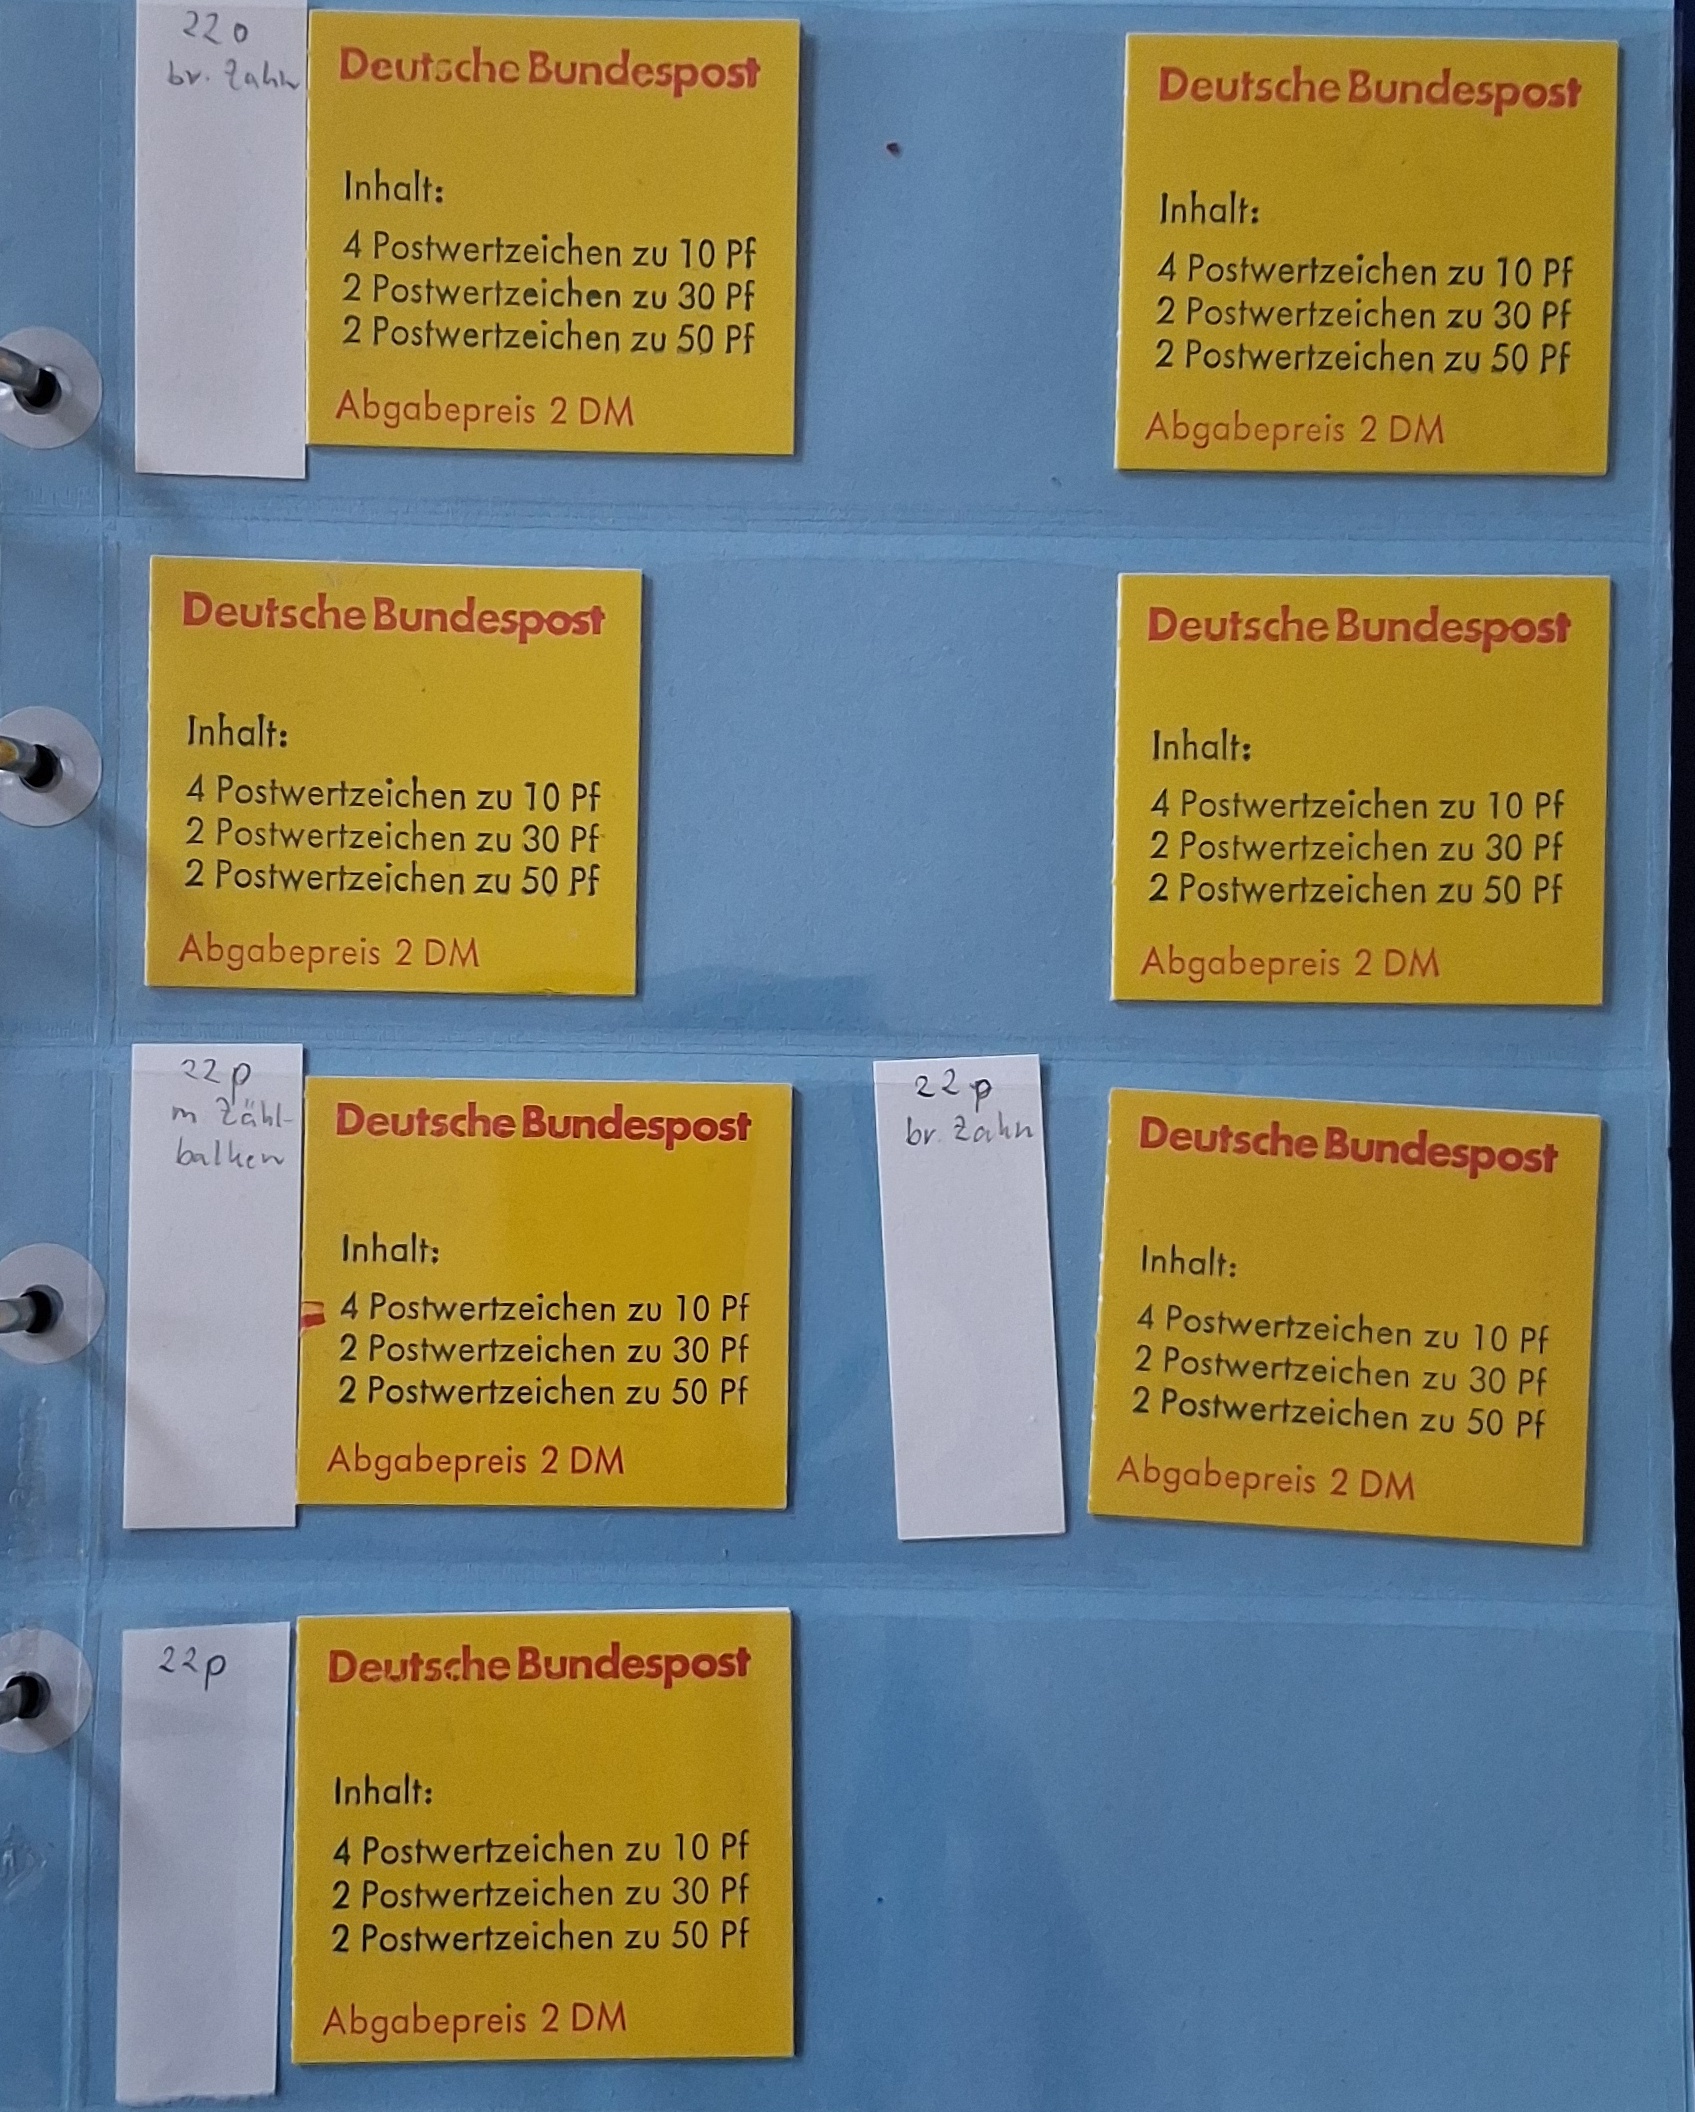 22o
br. Zahn
Deutsche Bundespost
Inhalt:
4 Postwertzeichen zu 10 Pf
2 Postwertzeichen zu 30 Pf
2 Postwertzeichen zu 50 Pf
Abgabepreis 2 DM
Deutsche Bundespost
Inhalt:
4 Postwertzeichen zu 10 Pf
2 Postwertzeichen zu 30 Pf
2 Postwertzeichen zu 50 Pf
Abgabepreis 2 DM
Deutsche Bundespost
Inhalt:
4 Postwertzeichen zu 10 Pf
2 Postwertzeichen zu 30 Pf
2 Postwertzeichen zu 50 Pf
Abgabepreis 2 DM
Deutsche Bundespost
Inhalt:
4 Postwertzeichen zu 10 Pf
2 Postwertzeichen zu 30 Pf
2 Postwertzeichen zu 50 Pf
Abgabepreis 2 DM
22p
m Zähl-
balken
Deutsche Bundespost
Inhalt:
4 Postwertzeichen zu 10 Pf
2 Postwertzeichen zu 30 Pf
2 Postwertzeichen zu 50 Pf
Abgabepreis 2 DM
22p
br. Zahn
Deutsche Bundespost
Inhalt:
4 Postwertzeichen zu 10 Pf
2 Postwertzeichen zu 30 Pf
2 Postwertzeichen zu 50 Pf
Abgabepreis 2 DM
22p
Deutsche Bundespost
Inhalt:
4 Postwertzeichen zu 10 Pf
2 Postwertzeichen zu 30 Pf
2 Postwertzeichen zu 50 Pf
Abgabepreis 2 DM